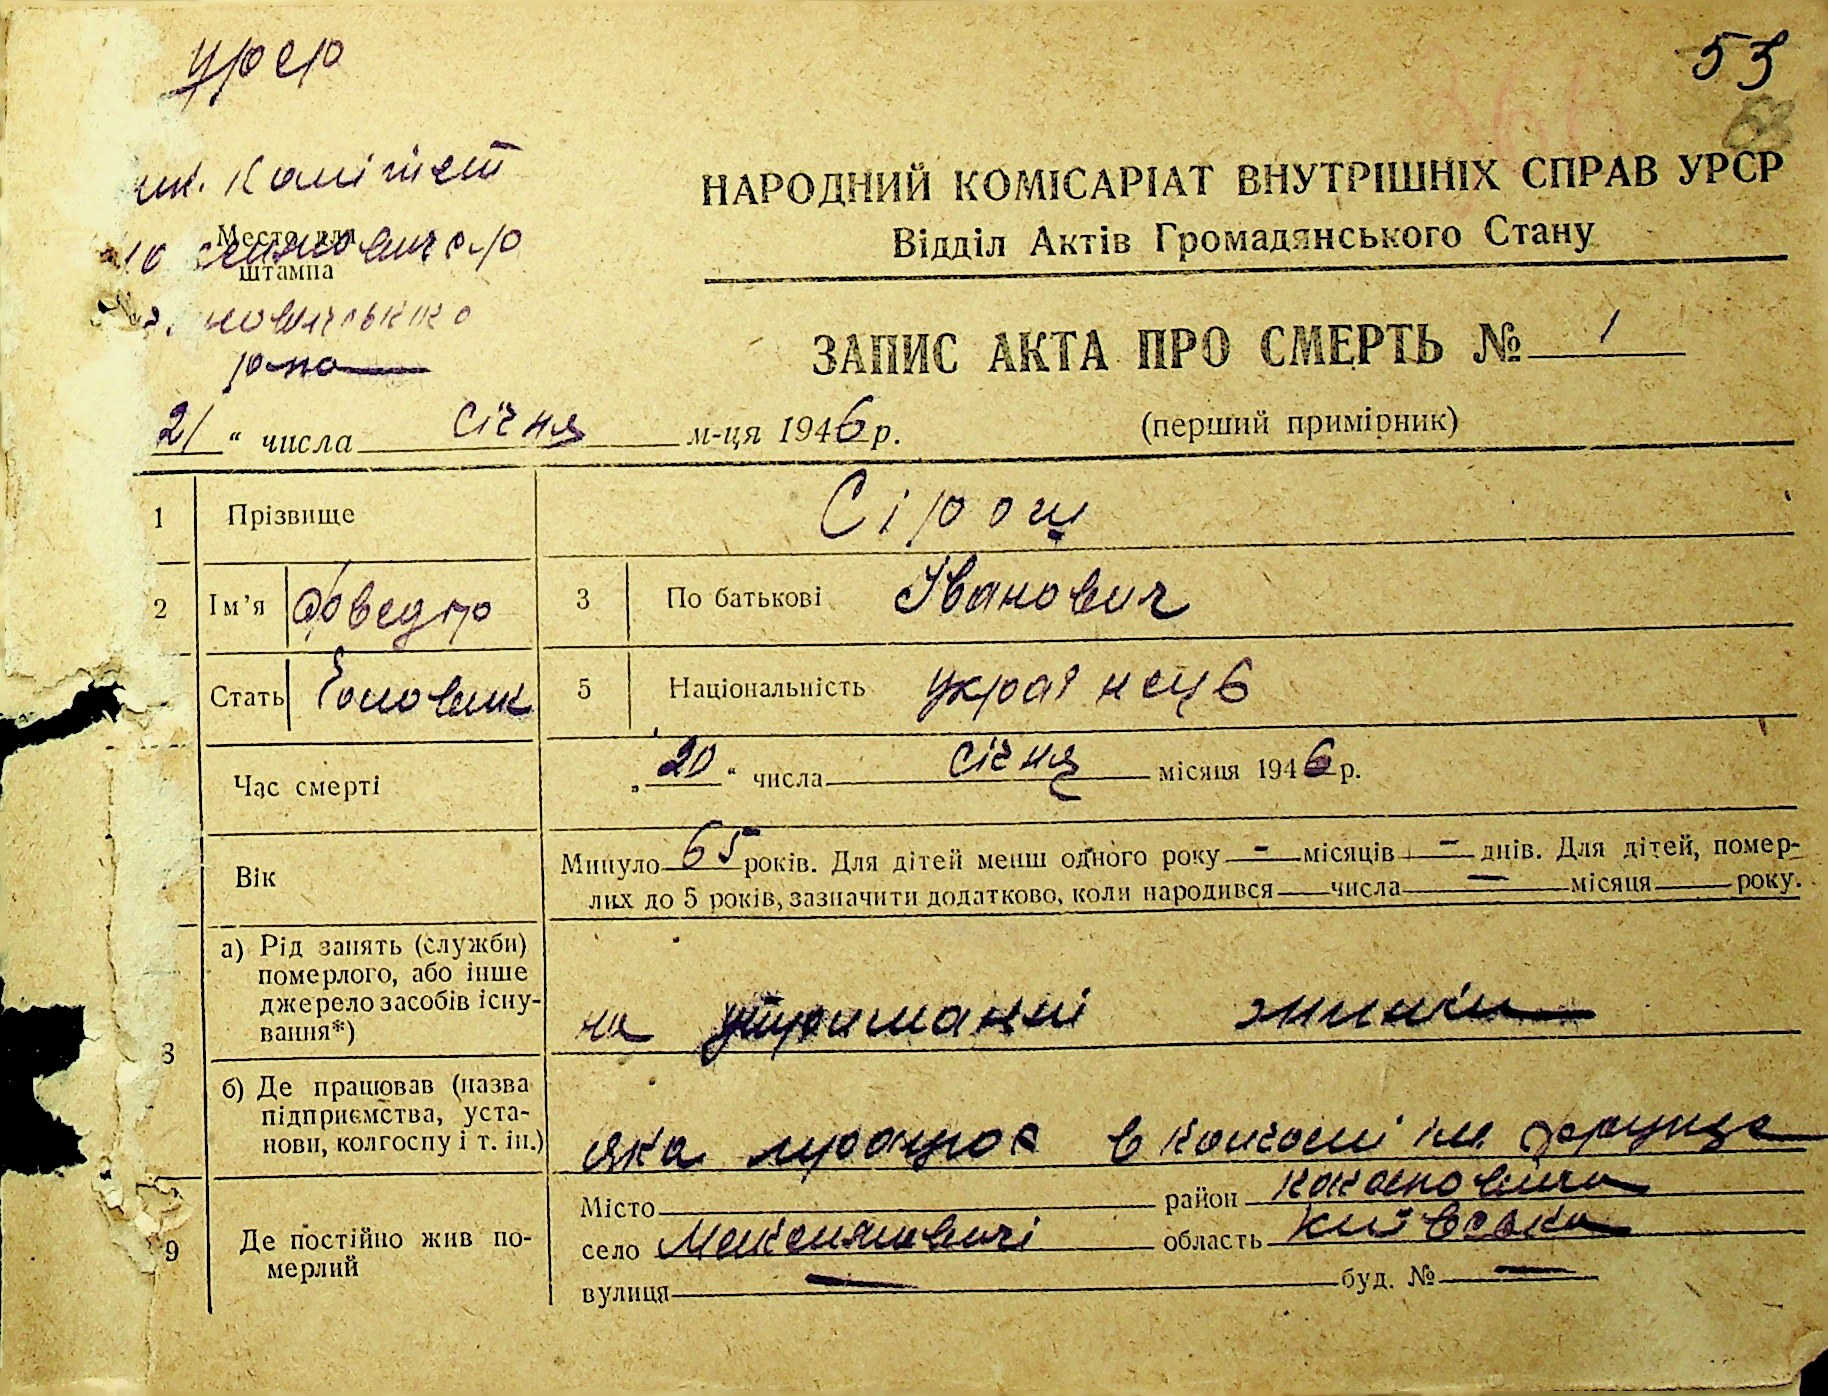 УРСР
53
вик. Комітет
Место для
штампа
р-на
НАРОДНИЙ КОМІСАРІАТ ВНУТРІШНІХ СПРАВ УРСР
Відділ Актів Громадянського Стану
ЗАПИС АКТА ПРО СМЕРТЬ № 1
21 " числа січня м-ця 1946 р. (перший примірник)
1 Прізвище Сірош
2 Ім'я Фведір 3 По батькові Іванович
Стать Чоловик 5 Національність українець
Час смерті „ 20 " числа січня місяця 1946 р.
Вік Минуло 65 років. Для дітей менш одного року - місяців - днів. Для дітей, помер-
лих до 5 років, зазначити додатково, коли народився числа — місяця року.
а) Рід занять (служби)
померлого, або інше
джерело засобів існу-
вання*)
на утриманні жинки
8
б) Де працював (назва
підприємства, уста-
нови, колгоспу і т. ін.)
яка працює в колгоспі ім Фрунзе
9 Де постійно жив по-
мерлий
Місто район Кагановича
село Максимовичі область Київська
вулиця — буд. № —